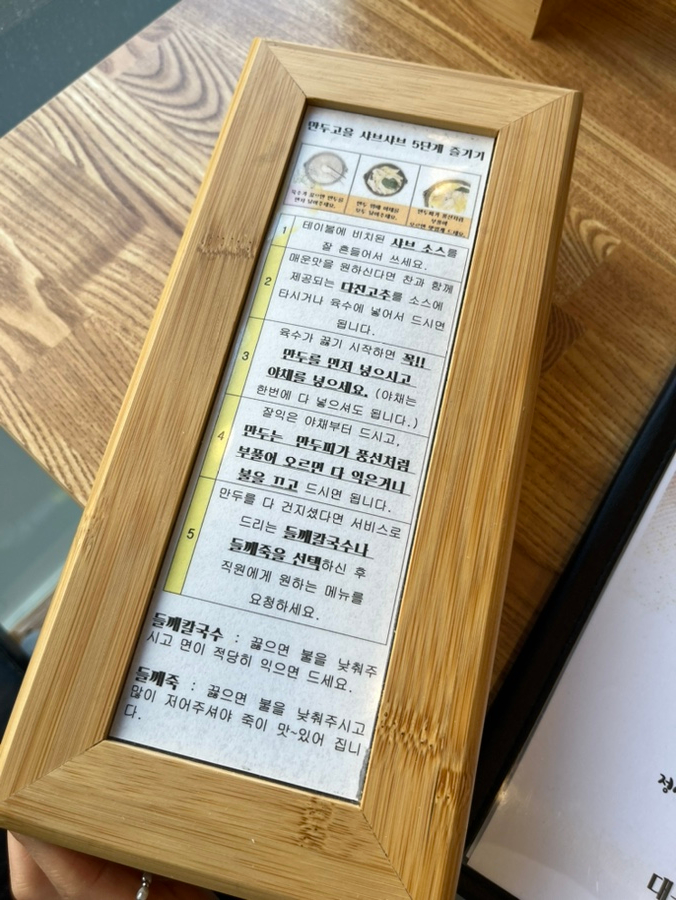 만두고을 샤브샤브 5단계 즐기기
육수가 끓으면 만두를
먼저 넣어주세요.
만두 위에 야채를
모두 넣어주세요.
만두피가 풍선처럼
부풀어
오르면 맛있게 드세요.
1
테이블에 비치된 샤브 소스를
잘 흔들어서 쓰세요.
2
매운맛을 원하신다면 찬과 함께
제공되는 다진고추를 소스에
타시거나 육수에 넣어서 드시면
됩니다.
3
육수가 끓기 시작하면 꼭!!
만두를 먼저 넣으시고
야채를 넣으세요. (야채는
한번에 다 넣으셔도 됩니다.)
4
잘익은 야채부터 드시고,
만두는 만두피가 풍선처럼
부풀어 오르면 다 익은거니
불을 끄고 드시면 됩니다.
5
만두를 다 건지셨다면 서비스로
드리는 들깨칼국수나
들깨죽을 선택하신 후
직원에게 원하는 메뉴를
요청하세요.
들깨칼국수 : 끓으면 불을 낮춰주
시고 면이 적당히 익으면 드세요.
들깨죽 : 끓으면 불을 낮춰주시고
많이 저어주셔야 죽이 맛~있어 집니
다.